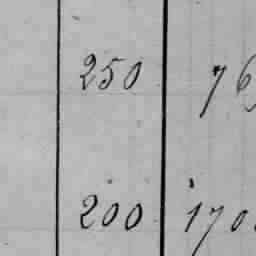 250 76
200 170